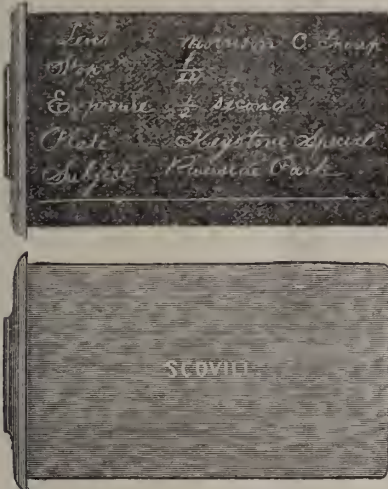 Lens Morrison C. Group
Stop f/
Exposure 1/2 second
Plate Keystone Special
Subject Riverside Park
SCOVILL